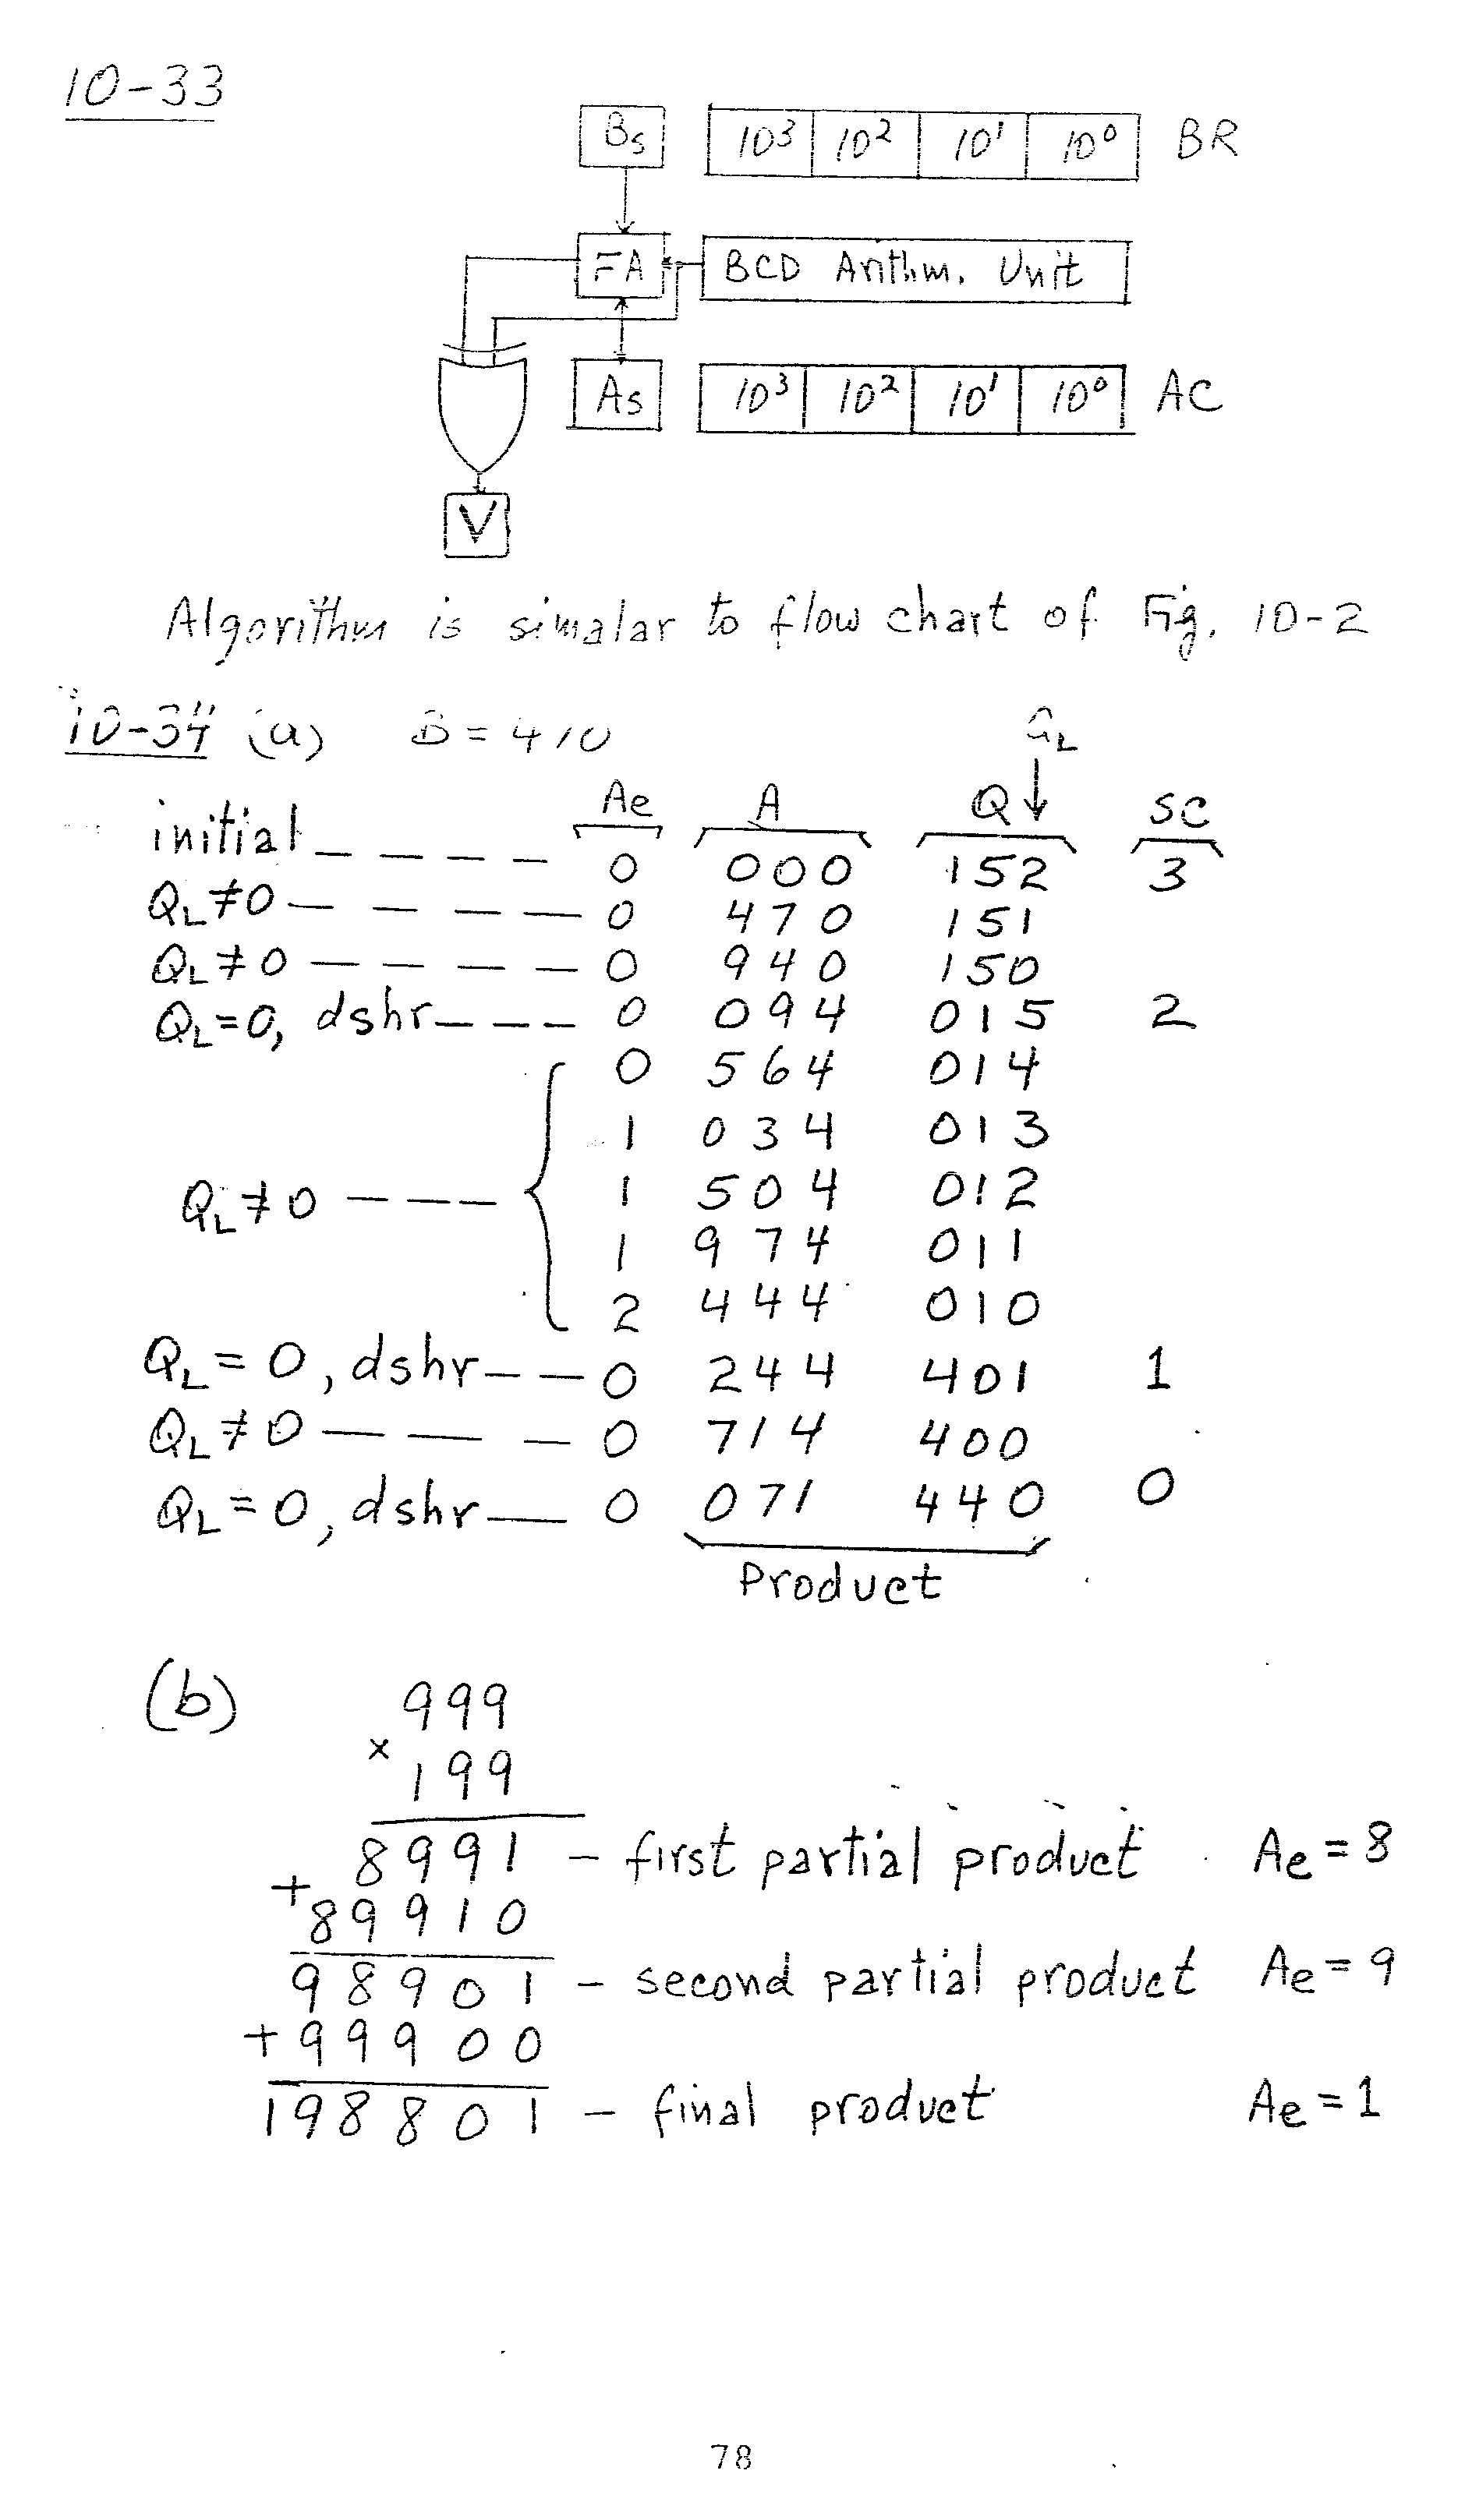 10-33
Bs 10³ 10² 10¹ 10⁰ BR
FA BCD Arithm. Unit
As 10³ 10² 10¹ 10⁰ AC
V
Algorithm is simalar to flow chart of Fig. 10-2
10-34 (a) B = 410 Q_L
Ae A Q ↓ SC
initial _ _ _ _ _ 0 000 152 3
Q_L≠0 — — — — 0 470 151
Q_L≠0 — — — — 0 940 150
Q_L=0, dshr — — — 0 094 015 2
0 564 014
1 034 013
Q_L≠0 — — — 1 504 012
1 974 011
2 444 010
Q_L=0, dshr — — 0 244 401 1
Q_L≠0 — — — 0 714 400
Q_L=0, dshr — 0 071 440 0
Product
(b) 999
× 199
8991 – first partial product Ae = 8
+ 89910
98901 – second partial product Ae = 9
+ 99900
198801 – final product Ae = 1
78